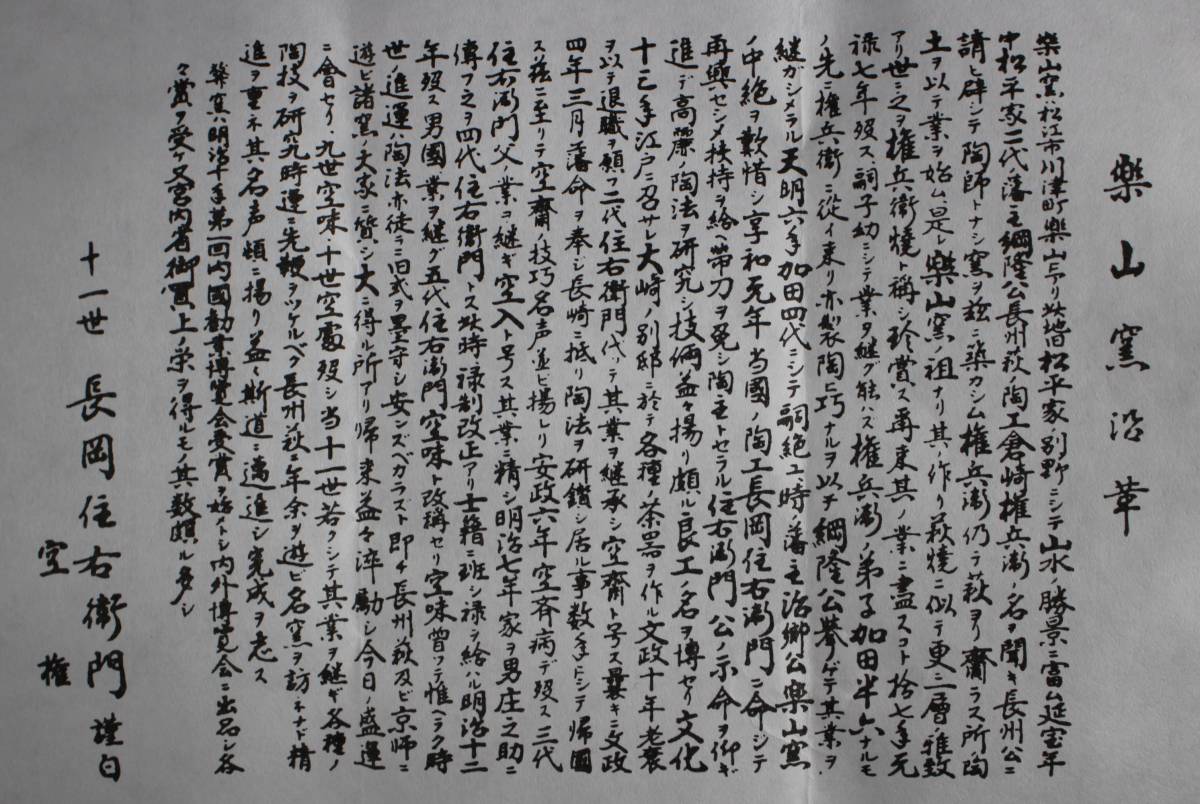 樂山窯沿革
樂山窯ハ松江市川津町樂山ニアリ此地旧松平家ノ別野ニシテ山水ノ勝景ニ富ム延宝年
中松平家二代藩主綱隆公長州萩ノ陶工倉崎権兵衛ノ名ヲ聞キ長州公ニ
請ヒ辟シテ陶師トナシ窯ヲ茲ニ築カシム権兵衛仍テ萩ヨリ齎ラス所陶
土ヲ以テ業ヲ始ム是レ樂山窯ノ祖ナリ其ノ作リ萩焼ニ似テ更ニ一層ノ雅致
アリ世ニ之ヲ権兵衛焼ト稱シ珍賞ス再来其ノ業ニ盡スコト拾七年元
禄七年歿ス詞子幼ニシテ業ヲ継グ能ハズ権兵衛ノ弟子加田半六ナルモ
ノ先ニ権兵衛ニ從イ来リ亦製陶ニ巧ナルヲ以テ綱隆公挙ゲテ其業ヲ
継ガシメラル天明六年加田四代ニシテ詞絶ユ時ノ藩主治郷公樂山窯
ノ中絶ヲ歎惜シ享和元年当國ノ陶工長岡住右衛門ニ命シテ
再興セシメ扶持ヲ給ヘ帯刀ヲ免シ陶主トセラル住右衛門公ノ示命ヲ仰ギ
進デ高麗陶法ヲ研究シ技倆益々揚リ頗ル良工ノ名ヲ博セリ文化
十三年江戸ニ召サレ大崎ノ別邸ニ於テ各種ノ茶器ヲ作ル文政十年老衰
ヲ以テ退職ヲ願フ二代住右衛門代テ其業ヲ継承シ空齋ト号ス曩キニ文政
四年三月藩命ヲ奉シ長崎ニ抵リ陶法ヲ研鑽シ居ル事数年ニシテ帰國
ス茲ニ至リテ空齋ノ技巧名声並ヒ揚レリ安政六年空斉病デ歿ス三代
住右衛門父ノ業ヲ継ギ空入ト号ス其ノ業ニ精シ明治七年家ヲ男庄之助ニ
傳フ之ヲ四代住右衛門トス此時禄制改正アリ士籍ニ班シ禄ヲ給ハル明治十二
年歿ス男國業ヲ継グ五代住右衛門空味ト改稱セリ空味曽ツテ惟ヘラク時
世ノ進運ハ陶法亦徒ラニ旧式ヲ墨守シ安ンズベカラズト即チ長州萩及ビ京師ニ
遊ビ諸窯ノ大家ニ質シ大ニ得ル所アリ帰来益々淬励シ今日ノ盛運
ニ會セリ九世空味十世空處歿シ当十一世若クシテ其業ヲ継ギ各種ノ
陶技ヲ研究九時運ニ先鞭ヲツケルベク長州萩ニ年余ヲ遊ビ名窯ヲ訪ネナド精
進ヲ重ネ其名声頓ニ揚リ益々斯道ニ邁進シ完成ヲ志ス
築窯ハ明治十年第一回内國勧業博覧会受賞ヲ始メトシ内外博覧会ニ出品シ各
々賞ヲ受ケ又宮内省御買上ノ栄ヲ得ルモノ其数頗ル多シ
十一世 長岡住右衛門 謹白
空権